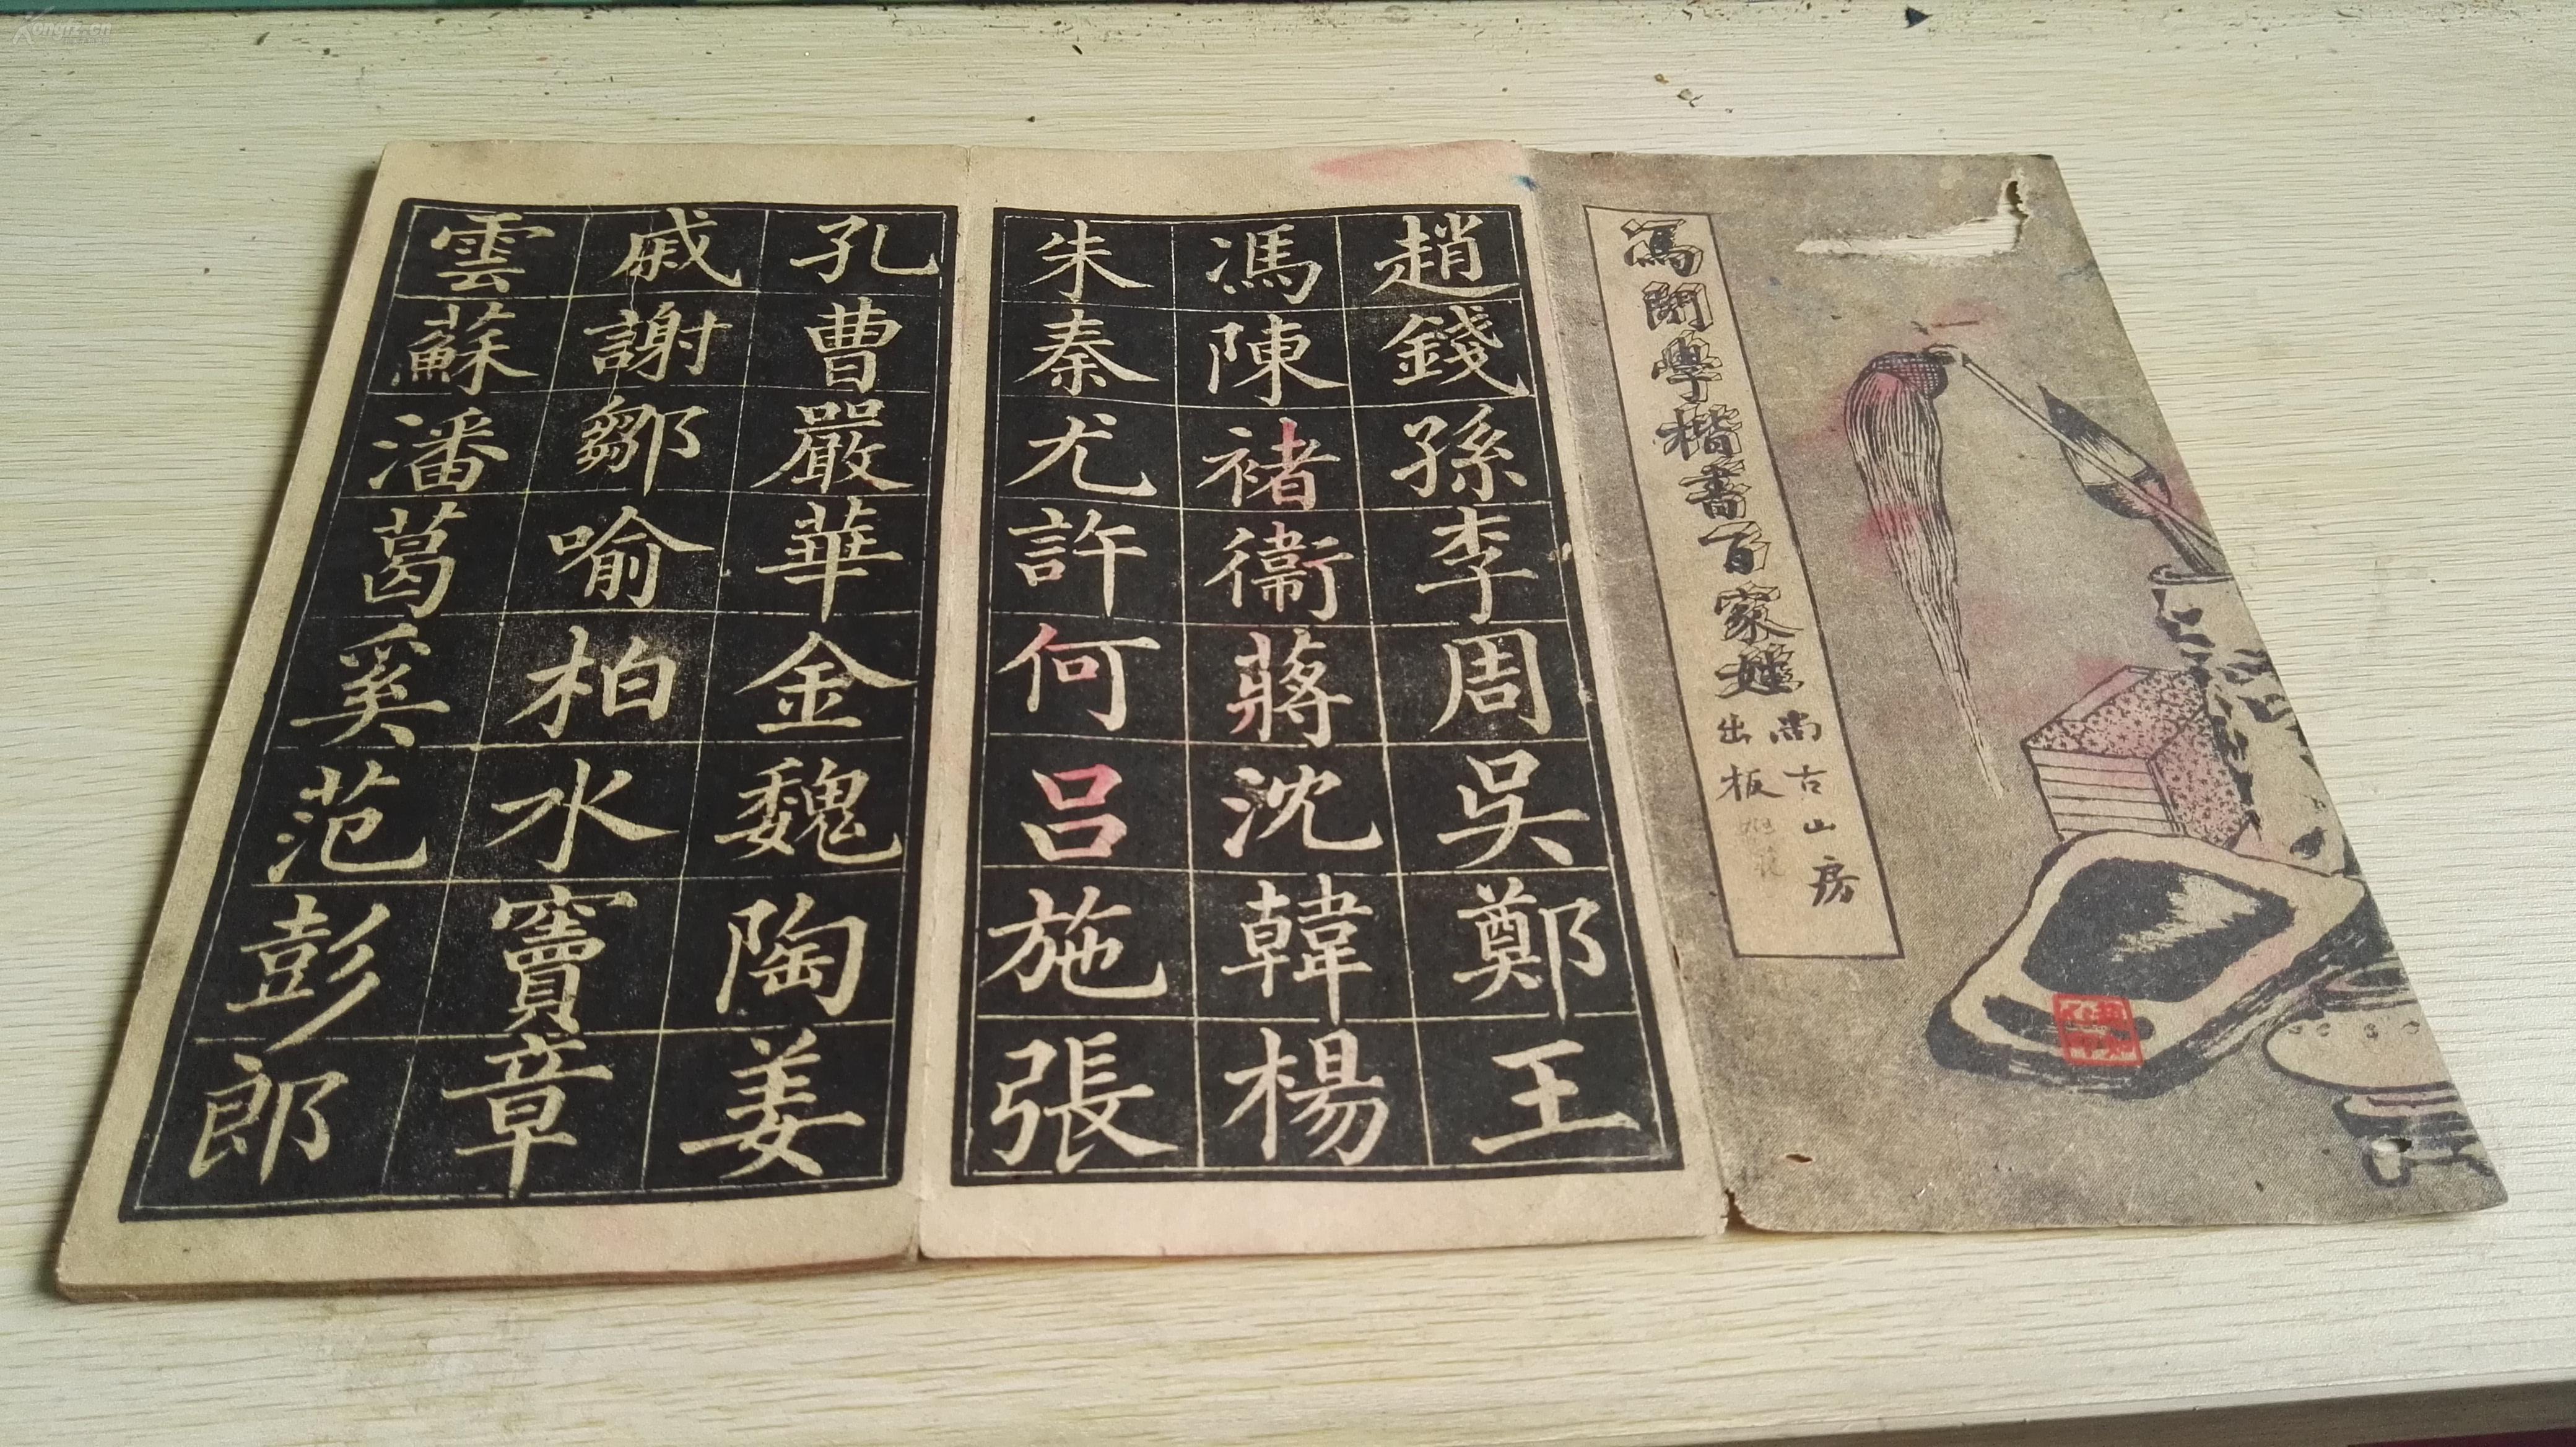 馮開學楷書百家姓
尚古山房
出板
趙錢孫李周吳鄭王
馮陳褚衞蔣沈韓楊
朱秦尤許何吕施張
孔曹嚴華金魏陶姜
戚謝鄒喻柏水竇章
雲蘇潘葛奚范彭郎